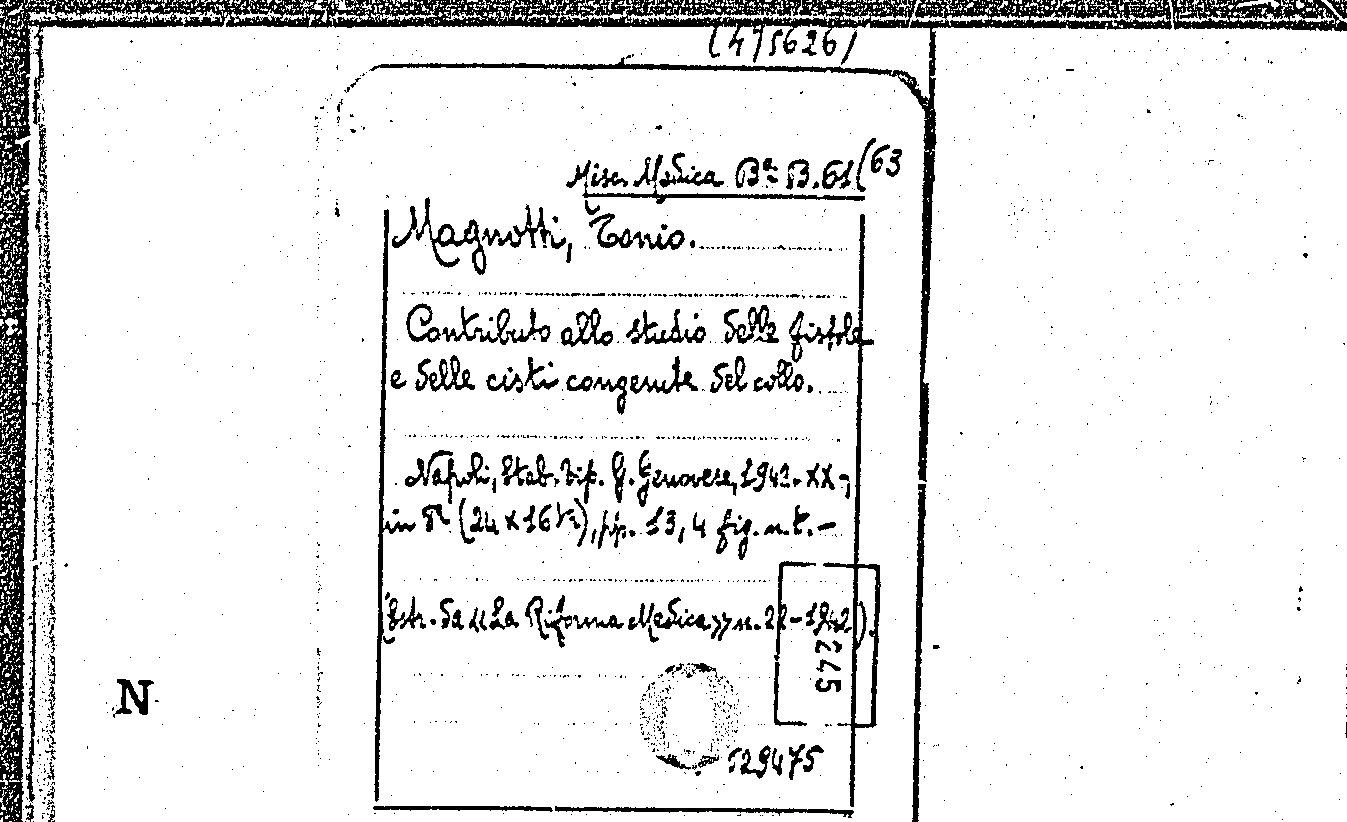 (475626)
Misc. Medica Bª B.61(63
Magnotti, Tonio.
Contributo allo studio delle fistole
e delle cisti congenite del collo.
Napoli, Stab. Tip. G. Genovese, 1942-XX-,
in 8º (24 x 16 ½), pp. 13, 4 fig. n.t. –
(Estr. da «La Riforma Medica» n. 22 – 1942).
245
N
529475